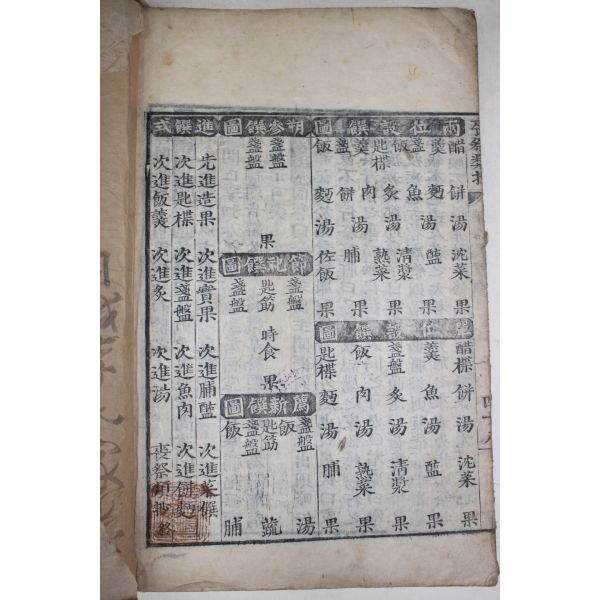 兩位設饌圖
醋 餠 湯 沈菜 果
羹 麵 湯 醢 果
盞盤 魚
飯 炙 湯 清漿 果
匙楪 熟菜
羹 肉 湯 果
盞盤 餠 脯
飯 麵 湯 佐飯 果
位設饌圖
醋楪 餠 湯 沈菜 果
羹 魚 湯 醢 果
盞盤 炙 湯 清漿 果
飯 肉 湯 熟菜 果
匙楪 麵 湯 脯 果
朔參饌圖
盞盤
盞盤
果
節祀饌圖
盞盤
匙筯 時食 果
盞盤
薦新饌圖
盞盤 湯
飯
匙筯 蔬
盞盤
飯 脯
進饌式
先進造果 次進實果 次進脯醢 次進菜饌
次進匙楪 次進盞盤 次進魚肉 次進餠麵
次進飯羹 次進炙 次進湯 喪祭類抄終